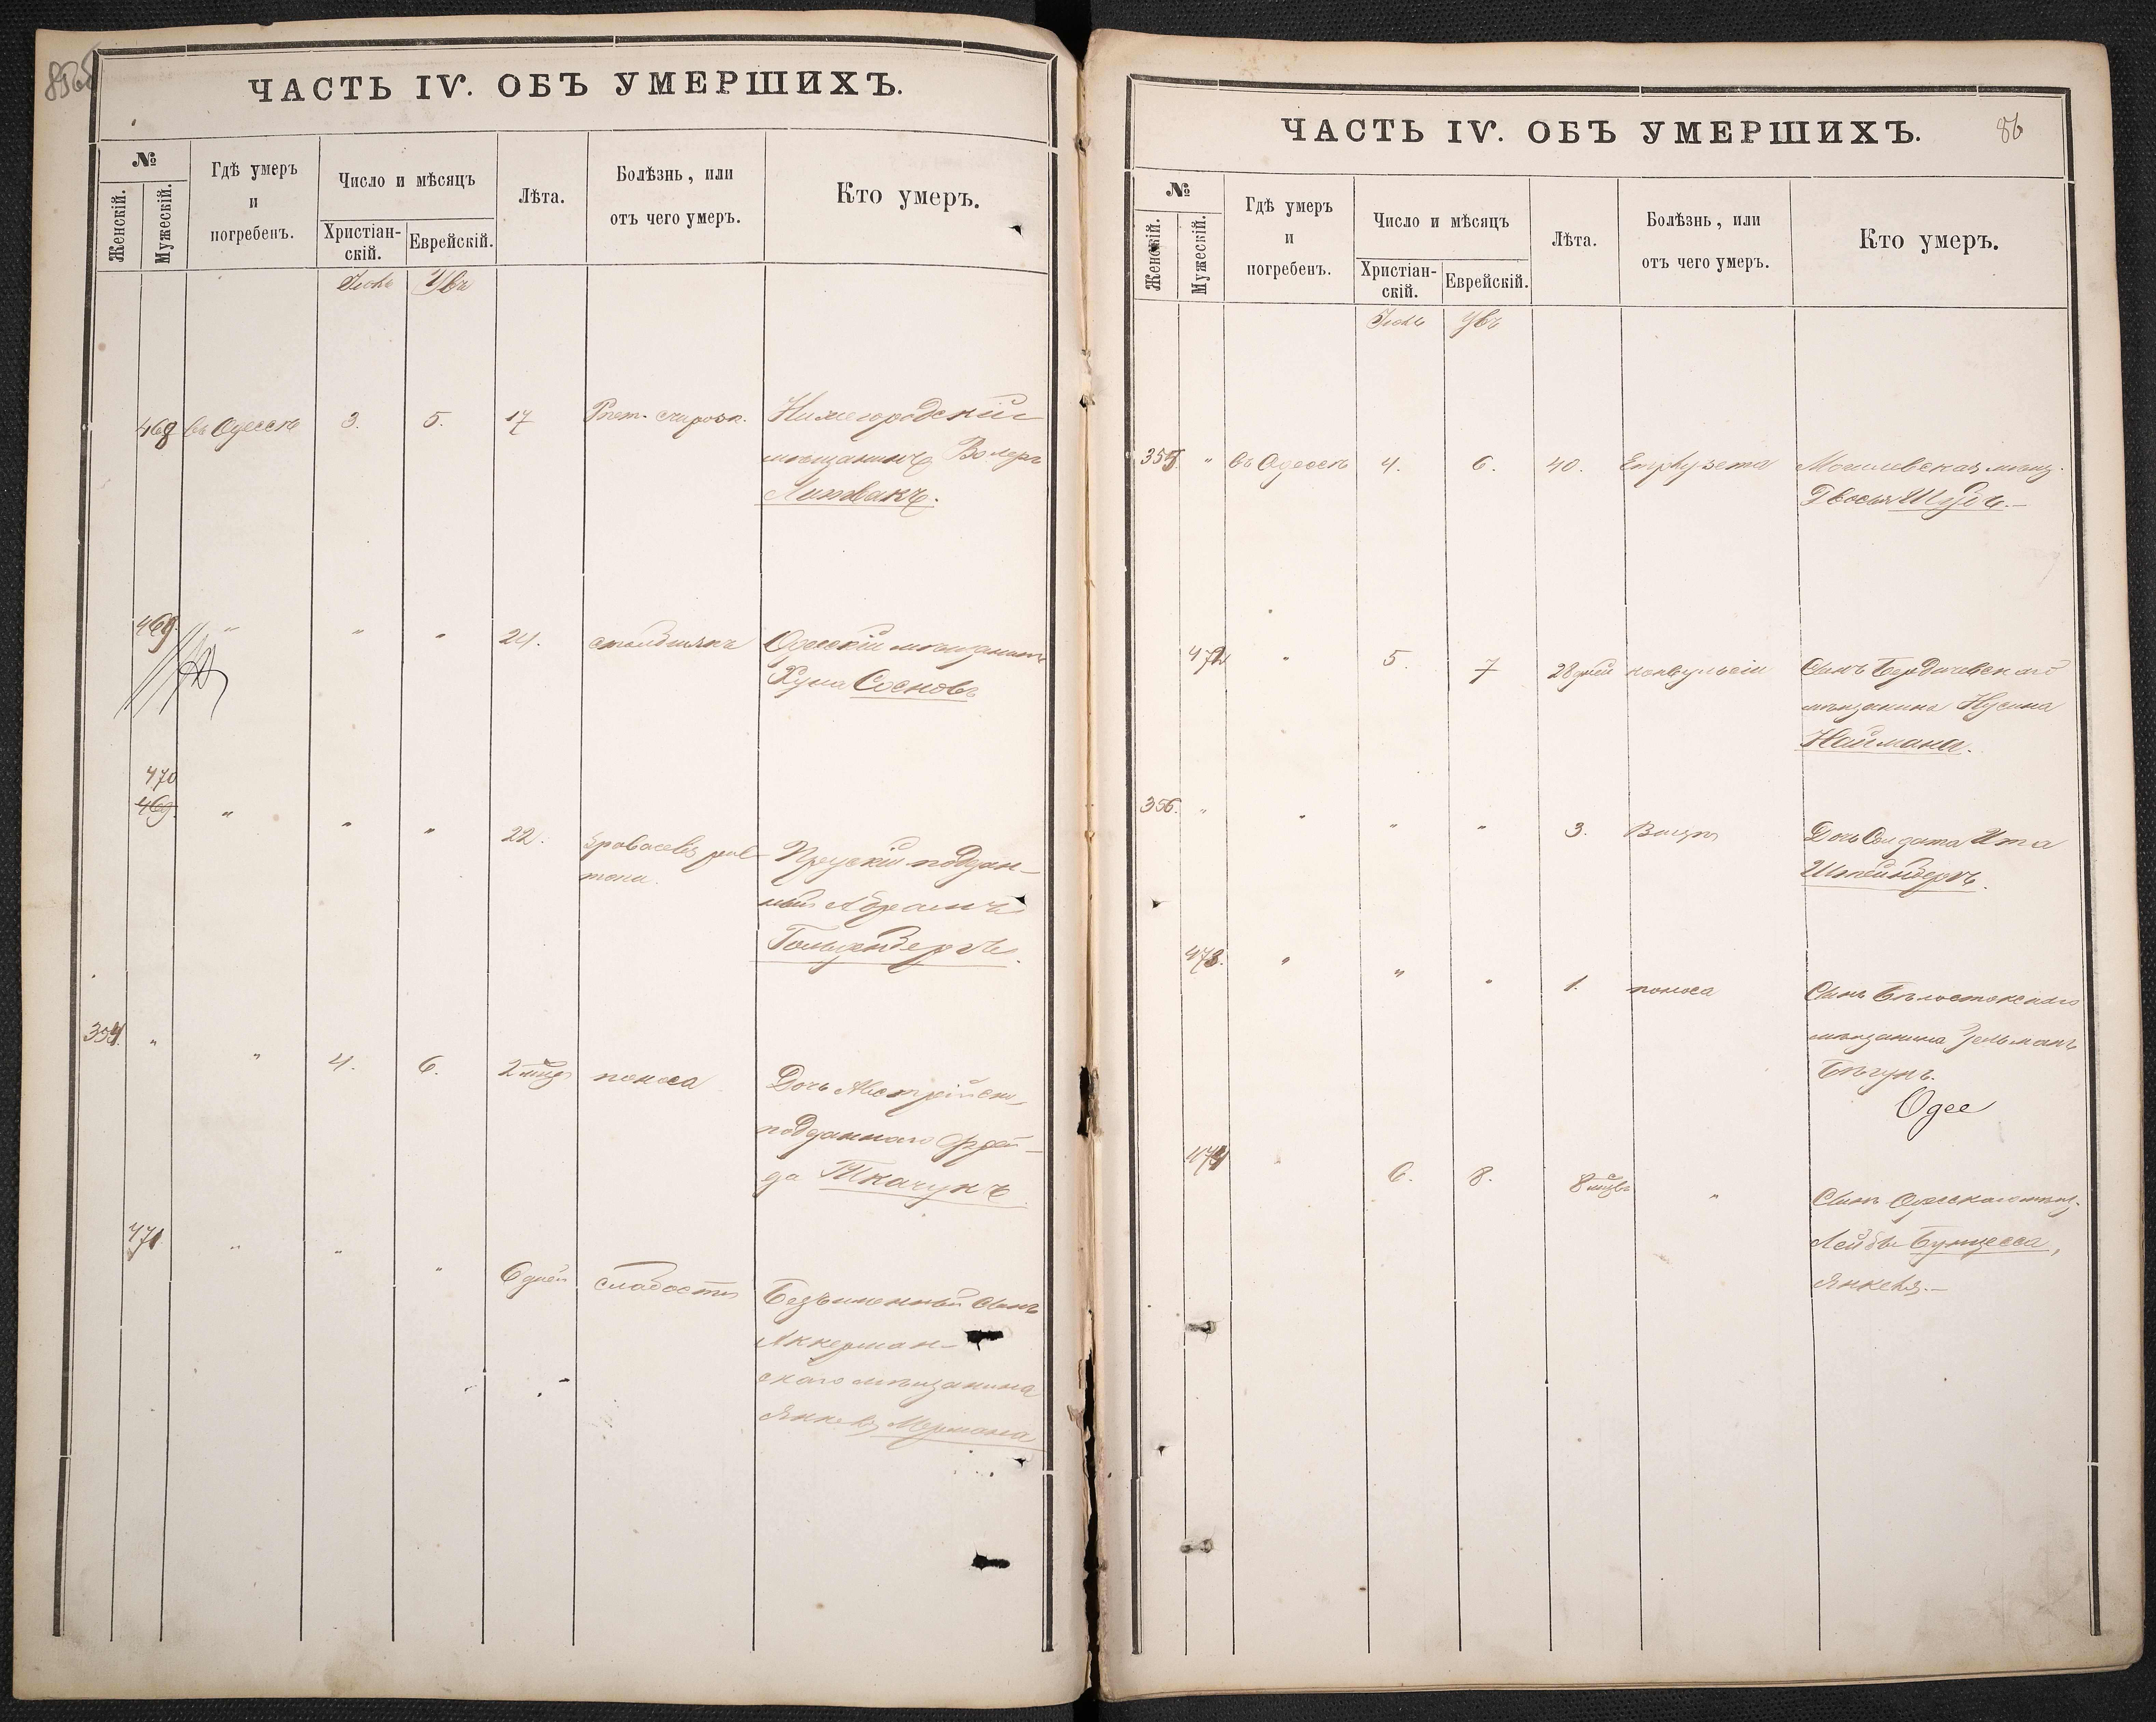 ЧАСТЬ IV. ОБЪ УМЕРШИХЪ.
№
Женскій.
Мужескій.
Гдѣ умеръ
и
погребенъ.
Число и мѣсяцъ
Христіан-
скій.
Еврейскій.
Лѣта.
Болѣзнь, или
отъ чего умеръ.
Кто умеръ.
468 въ Одессѣ 3. 5. 17 Нижегородскій
мѣщанинъ
Литвакъ.
469. " " " 24. столбнякъ Одесскій мѣщанинъ
Сосновъ
470
469. " " " 22. Прускій поддан-
ный Абрамъ
Гольденбергъ.
354. " " 4. 6. 2 мѣс поноса Дочь Австрійск.
подданнаго Фрей-
да Ткачукъ
471 " " " 6 дней слабости Безъименный сынъ
Аккерман-
скаго мѣщанина
Янкеля Мермана
ЧАСТЬ IV. ОБЪ УМЕРШИХЪ.
86
№
Женскій.
Мужескій.
Гдѣ умеръ
и
погребенъ.
Число и мѣсяцъ
Христіан-
скій.
Еврейскій.
Лѣта.
Болѣзнь, или
отъ чего умеръ.
Кто умеръ.
355. " въ Одессѣ 4. 6. 40. Emphysema Могилевская мѣщ.
472 " 5. 7 28 дней конвульсіи Сынъ Бердичевскаго
мѣщанина Нусина
Наймана.
356. " " " " 3. Дочь Солдата Ита
Штейнбергъ.
473. " " " 1. поноса Сынъ Бѣлостокскаго
мѣщанина Зельманъ
Бѣгунъ.
Одес
474 6. 8. 8 мѣсвъ " Сынъ Одесскаго мѣщ.
Лейбы Бунцесса,
Янкель.—